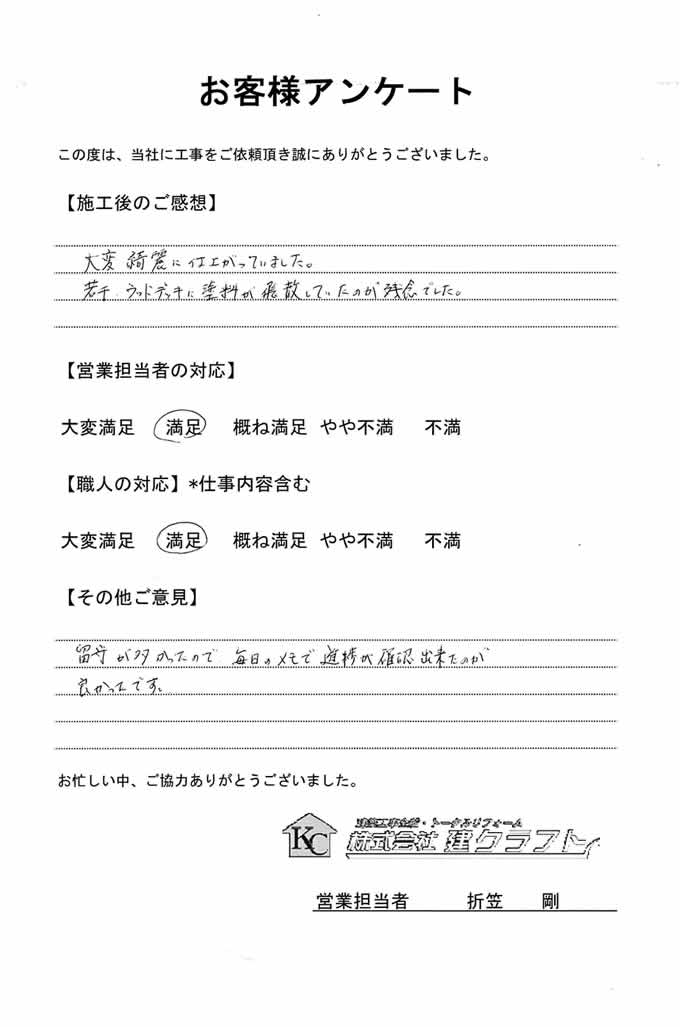 お客様アンケート
この度は、当社に工事をご依頼頂き誠にありがとうございました。
【施工後のご感想】
大変綺麗に仕上がっていました。
若干、ウッドデッキに塗料が飛散していたのが残念でした。
【営業担当者の対応】
大変満足 満足 概ね満足 やや不満 不満
【職人の対応】*仕事内容含む
大変満足 満足 概ね満足 やや不満 不満
【その他ご意見】
留守が多かったので毎日のメモで進捗が確認出来たのが
良かったです。
お忙しい中、ご協力ありがとうございました。
KC
建築工事全般・トータルリフォーム
株式会社 建クラフト
営業担当者 折笠 剛